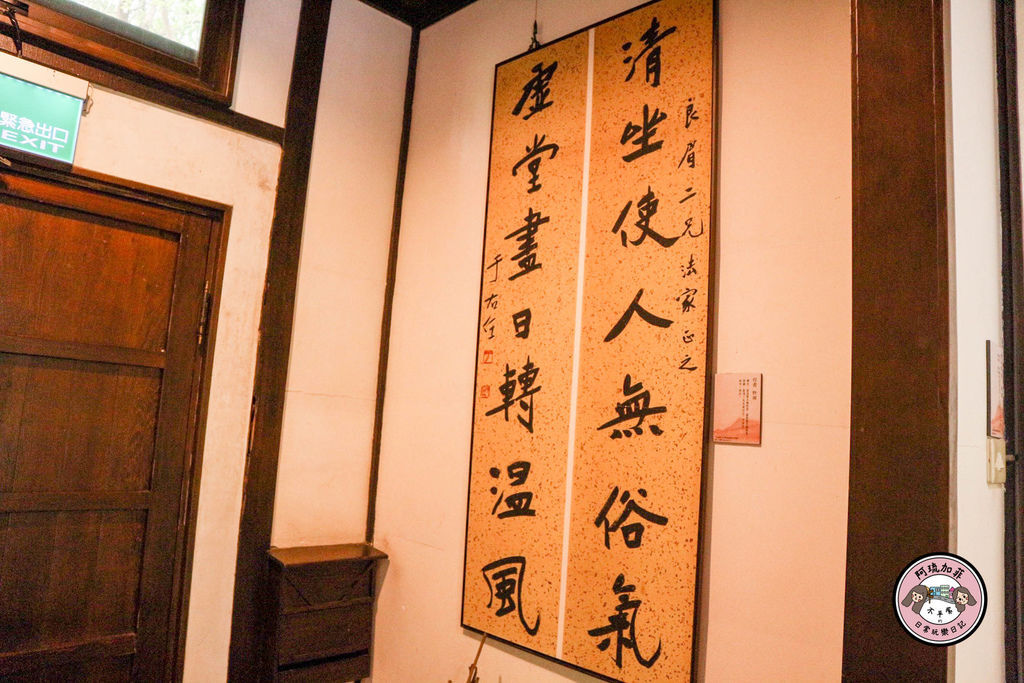 緊急出口
EXIT
良眉二兄法家正之
清坐使人無俗氣
虛堂晝日轉溫風
于右任
阿琉加菲
日常玩樂日記